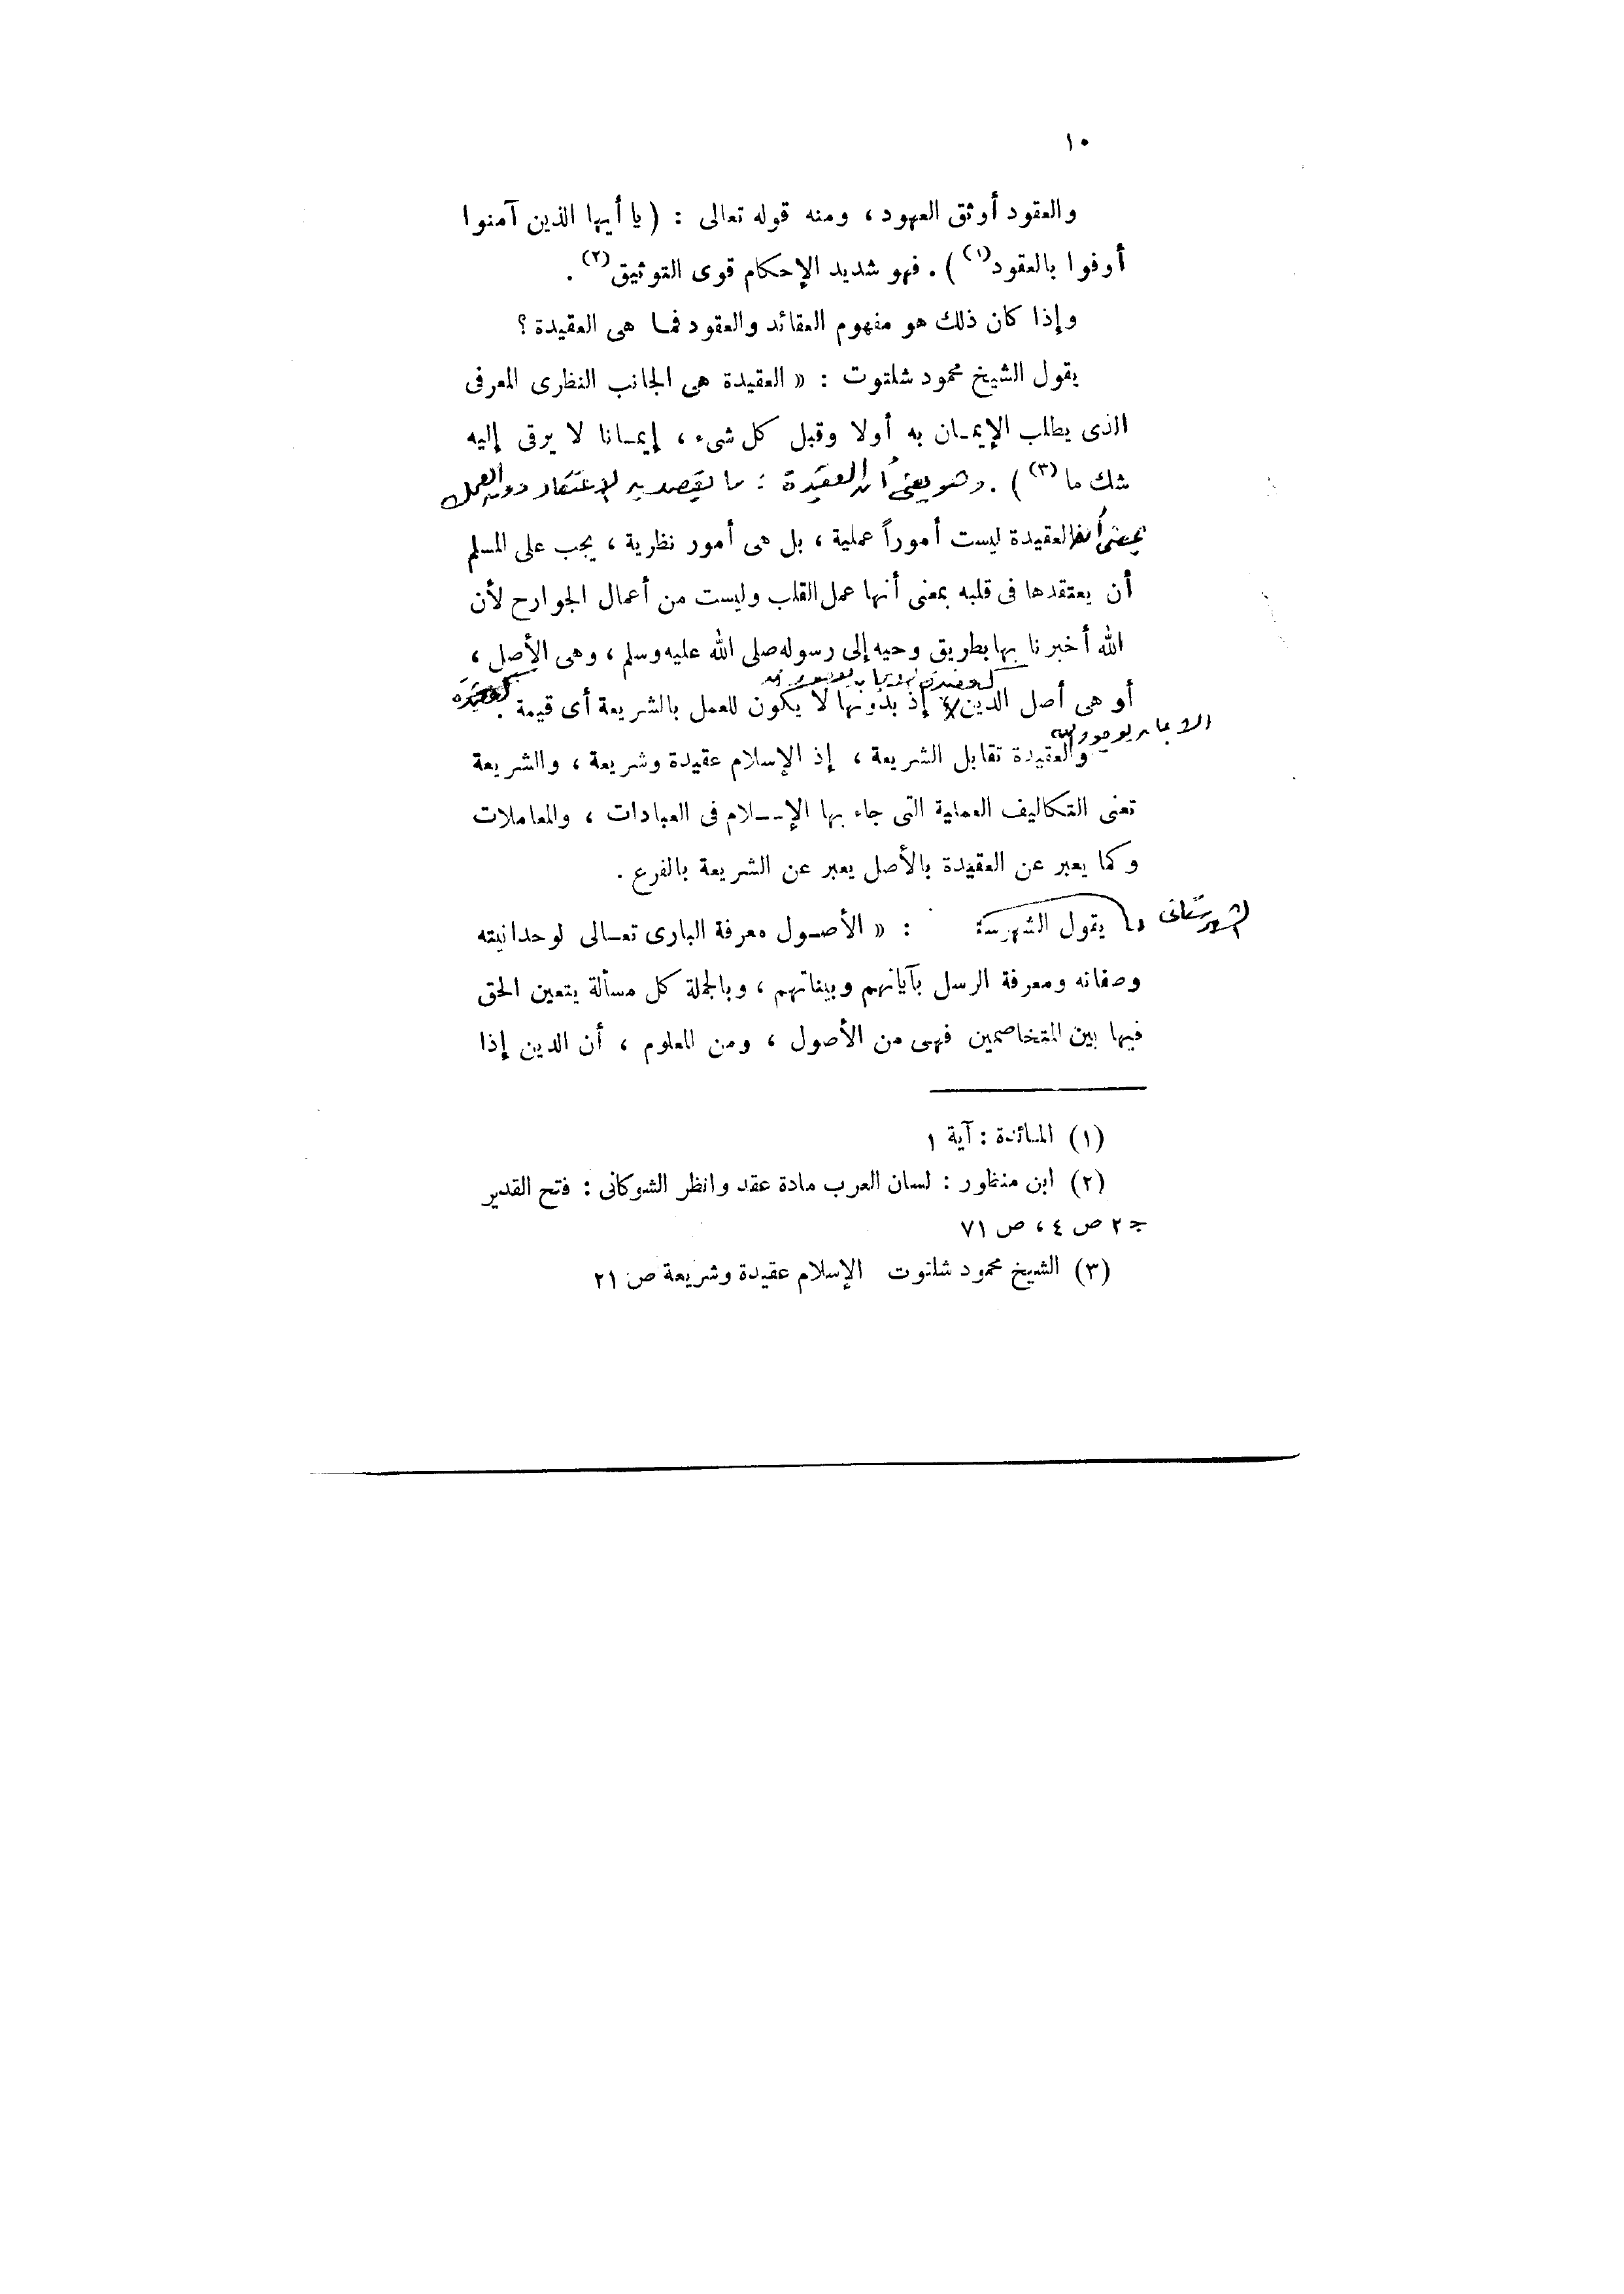 ١٠
والعقود أوثق العهود ، ومنه قوله تعالى : ( يا أيها الذين آمنوا
أوفوا بالعقود(١) ) . فهو شديد الإحكام قوى التوثيق(٢) .
وإذا كان ذلك هو مفهوم العقائد والعقود فما هى العقيدة ؟
يقول الشيخ محمود شلتوت : « العقيدة هى الجانب النظرى المعرفى
الذى يطلب الإيمان به أولا وقبل كل شىء ، إيمانا لا يرقى إليه
شك ما(٣) ) . وهو يعنى أن العقيدة : ما يقصد به الاعتقاد دون العمل
بمعنى أن العقيدة ليست أموراً عملية ، بل هى أمور نظرية ، يجب على المسلم
أن يعتقدها فى قلبه بمعنى أنها عمل القلب وليست من أعمال الجوارح لأن
الله أخبرنا بها بطريق وحيه إلى رسوله صلى الله عليه وسلم ، وهى الأصل ،
أو هى أصل الدين ، إذ بدونها لا يكون للعمل بالشريعة أى قيمة .
والعقيدة تقابل الشريعة ، إذ الإسلام عقيدة وشريعة ، والشريعة
تعنى التكاليف العملية التى جاء بها الإسلام فى العبادات ، والمعاملات
وكما يعبر عن العقيدة بالأصل يعبر عن الشريعة بالفرع .
الشهرستانى
يقول : « الأصول معرفة البارى تعالى لوحدانيته
وصفاته ومعرفة الرسل بآياتهم وبيناتهم ، وبالجملة كل مسألة يتعين الحق
فيها بين المتخاصمين فهى من الأصول ، ومن المعلوم ، أن الدين إذا
(١) المائدة : آية ١
(٢) ابن منظور : لسان العرب مادة عقد وانظر الشوكانى : فتح القدير
جـ ٢ ص ٤ ، ص ٧١
(٣) الشيخ محمود شلتوت الإسلام عقيدة وشريعة ص ٢١